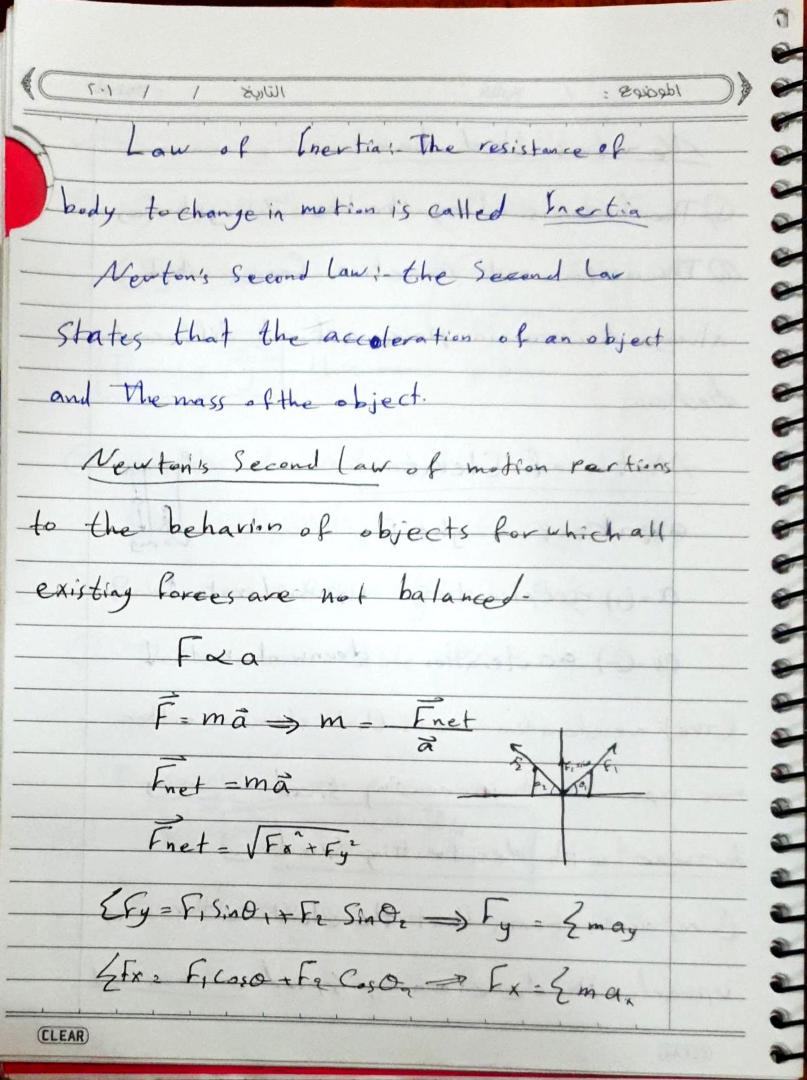 الموضوع :
التاريخ / / ٢٠١
Law of Inertia:- The resistance of
body to change in motion is called Inertia
Newton's Second Law:- the Second Law
States that the acceleration of an object
and The mass of the object.
Newton's Second Law of motion pertions
to the behavion of objects for which all
existing forces are not balanced.
F ∝ a
F⃗ = m a⃗ ⇒ m = F⃗net / a⃗
F⃗net = m a⃗
F⃗net = √(Fx² + Fy²)
F₂ F₁
θ₂ θ₁
ΣFy = F₁ Sinθ₁ + F₂ Sinθ₂ ⇒ Fy = Σ m ay
ΣFx = F₁ Cosθ + F₂ Cosθ₂ ⇒ Fx = Σ m aₓ
CLEAR